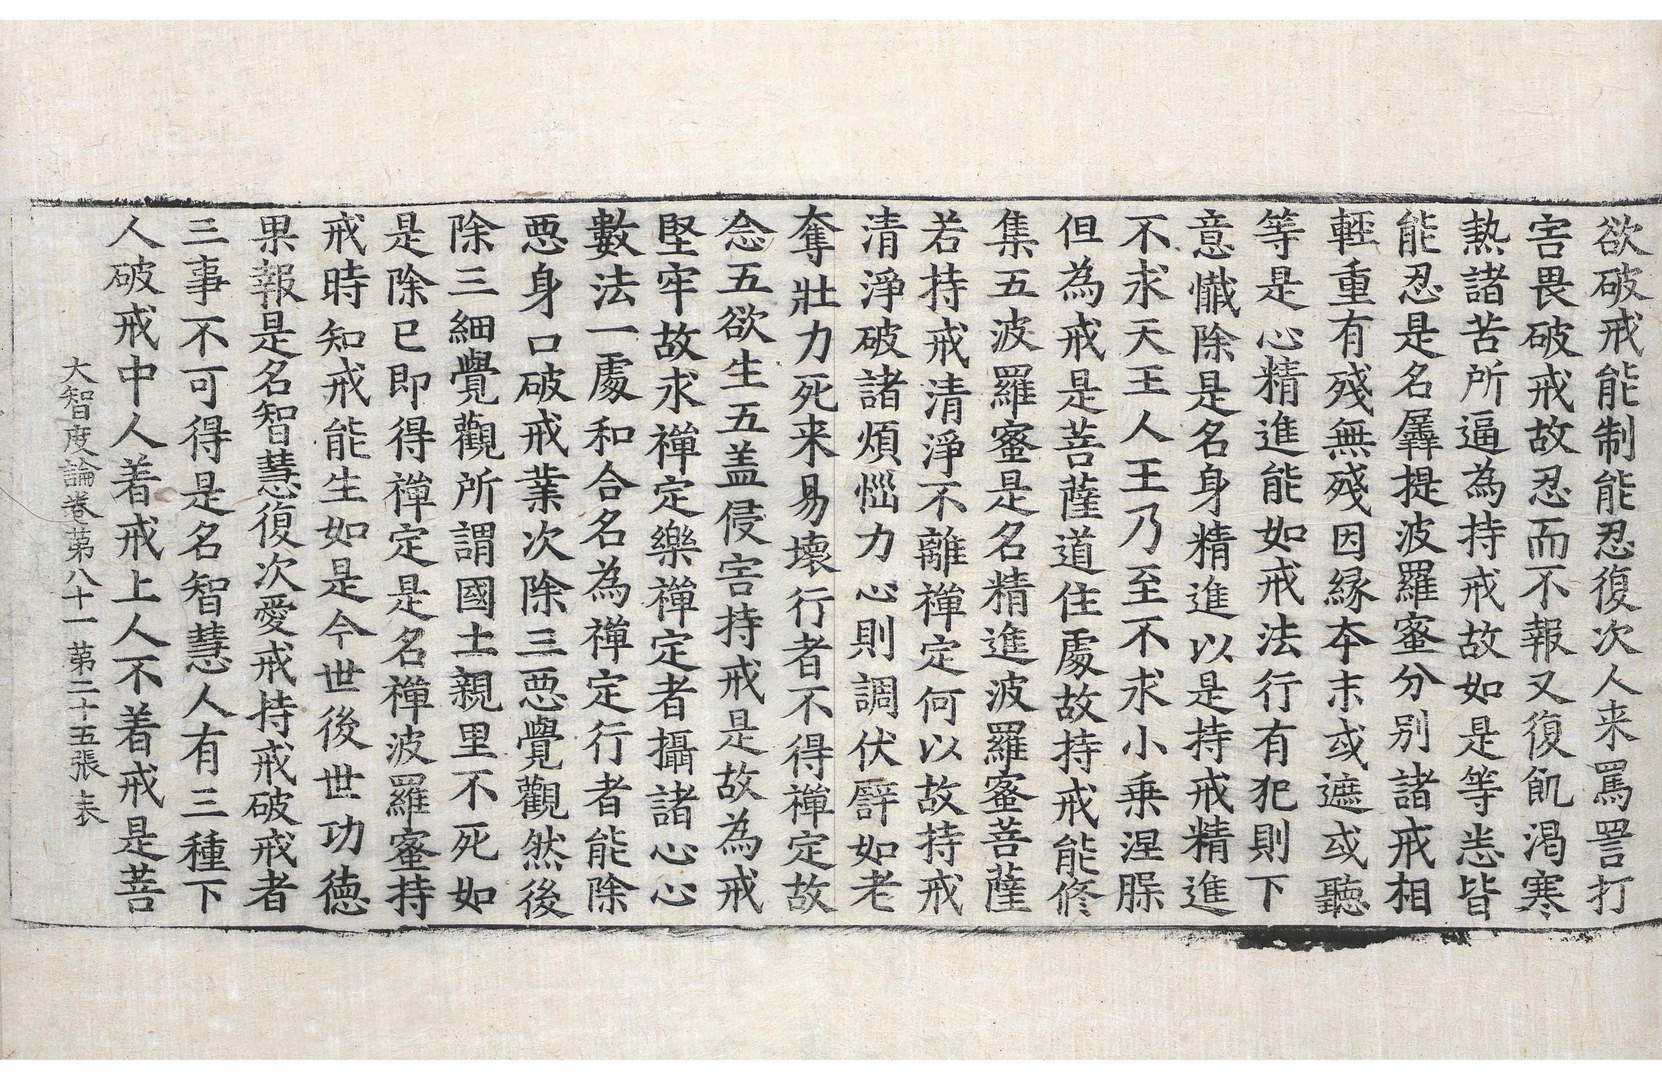 欲破戒能制能忍復次人来罵詈打
害畏破戒故忍而不報又復飢渴寒
熱諸苦所逼為持戒故如是等恙皆
能忍是名羼提波羅蜜分别諸戒相
輕重有殘無殘因縁夲末或遮或聽
等是心精進能如戒法行有犯則下
意懺除是名身精進以是持戒精進
不求天王人王乃至不求小乗涅腂
但為戒是菩薩道住處故持戒能修
集五波羅蜜是名精進波羅蜜菩薩
若持戒清淨不離禅定何以故持戒
清淨破諸煩惱力心則調伏譬如老
奪壯力死来易壊行者不得禅定故
念五欲生五盖侵害持戒是故為戒
堅牢故求禅定樂禅定者攝諸心心
數法一處和合名為禅定行者能除
悪身口破戒業次除三悪覺觀然後
除三細覺觀所謂國土親里不死如
是除已即得禅定是名禅波羅蜜持
戒時知戒能生如是今世後世功徳
果報是名智慧復次愛戒持戒破戒者
三事不可得是名智慧人有三種下
人破戒中人着戒上人不着戒是菩
大智度論卷第八十一 第二十五張 表